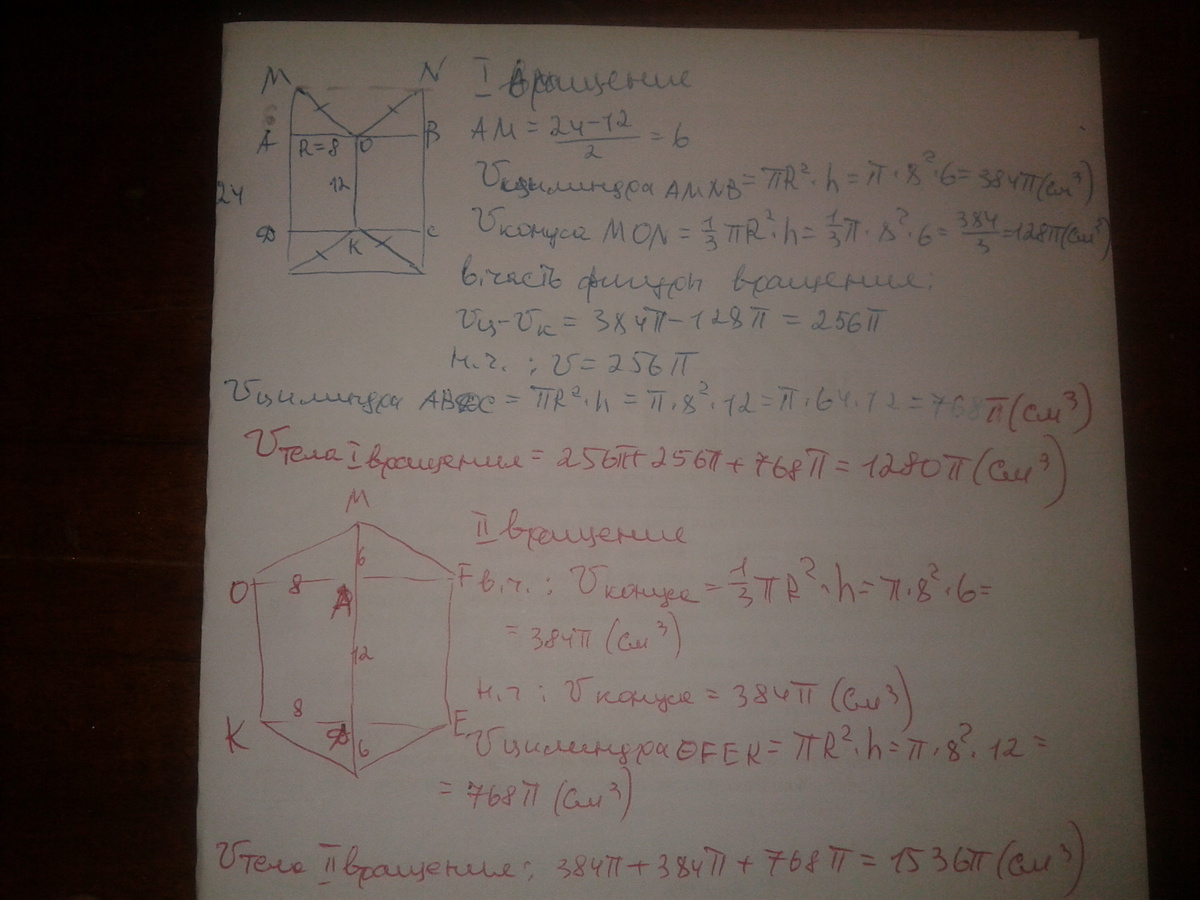 M N
A R=8 O B
12
24
D K C
I вращение
AM = 24-12/2 = 6
Vцилиндра AMNB = πR²·h = π·8²·6 = 384π(см³)
Vконуса MON = 1/3 πR²·h = 1/3 π·8²·6 = 384/3 = 128π(см³)
в.часть фигуры вращения:
Vц-Vк = 384π-128π = 256π
н.ч. ; V = 256π
Vцилиндра ABDC = πR²·h = π·8²·12 = π·64·12 = 768π(см³)
Vтела I вращения = 256π+256π+768π = 1280π(см³)
M
6
O 8 A F
12
K 8 D E
6
II вращение
в.ч. ; Vконуса = 1/3 πR²·h = π·8²·6 =
= 384π (см³)
н.ч ; Vконуса = 384π (см³)
Vцилиндра OFEK = πR²·h = π·8²·12 =
= 768π (см³)
Vтела II вращение ; 384π+384π+768π = 1536π(см³)